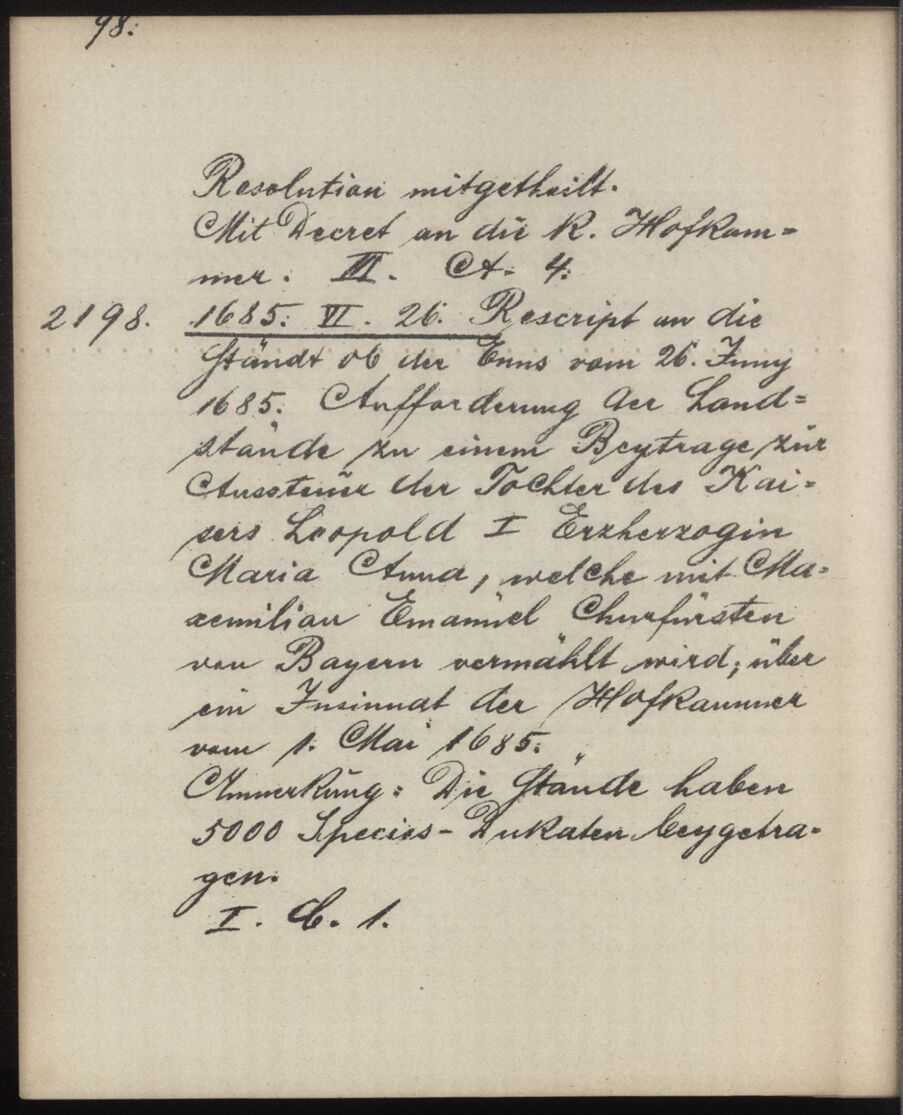 98.
Resolution mitgetheilt.
Mit Decret an die K. Hofkam=
mer. III. A. 4.
2198. 1685. VI. 26. Rescript an die
Stände ob der Enns vom 26. Juny
1685. Aufforderung der Land=
stände zu einem Beytrage zur
Aussteuer der Tochter des Kai=
sers Leopold I Erzherzogin
Maria Anna, welche mit Ma=
xemilian Emanuel Churfürsten
von Bayern vermählt wird; über
ein Insinuat der Hofkammer
vom 1. Mai 1685.
Anmerkung: Die Stände haben
5000 Species-Dukaten beygetra=
gen.
I. C. 1.